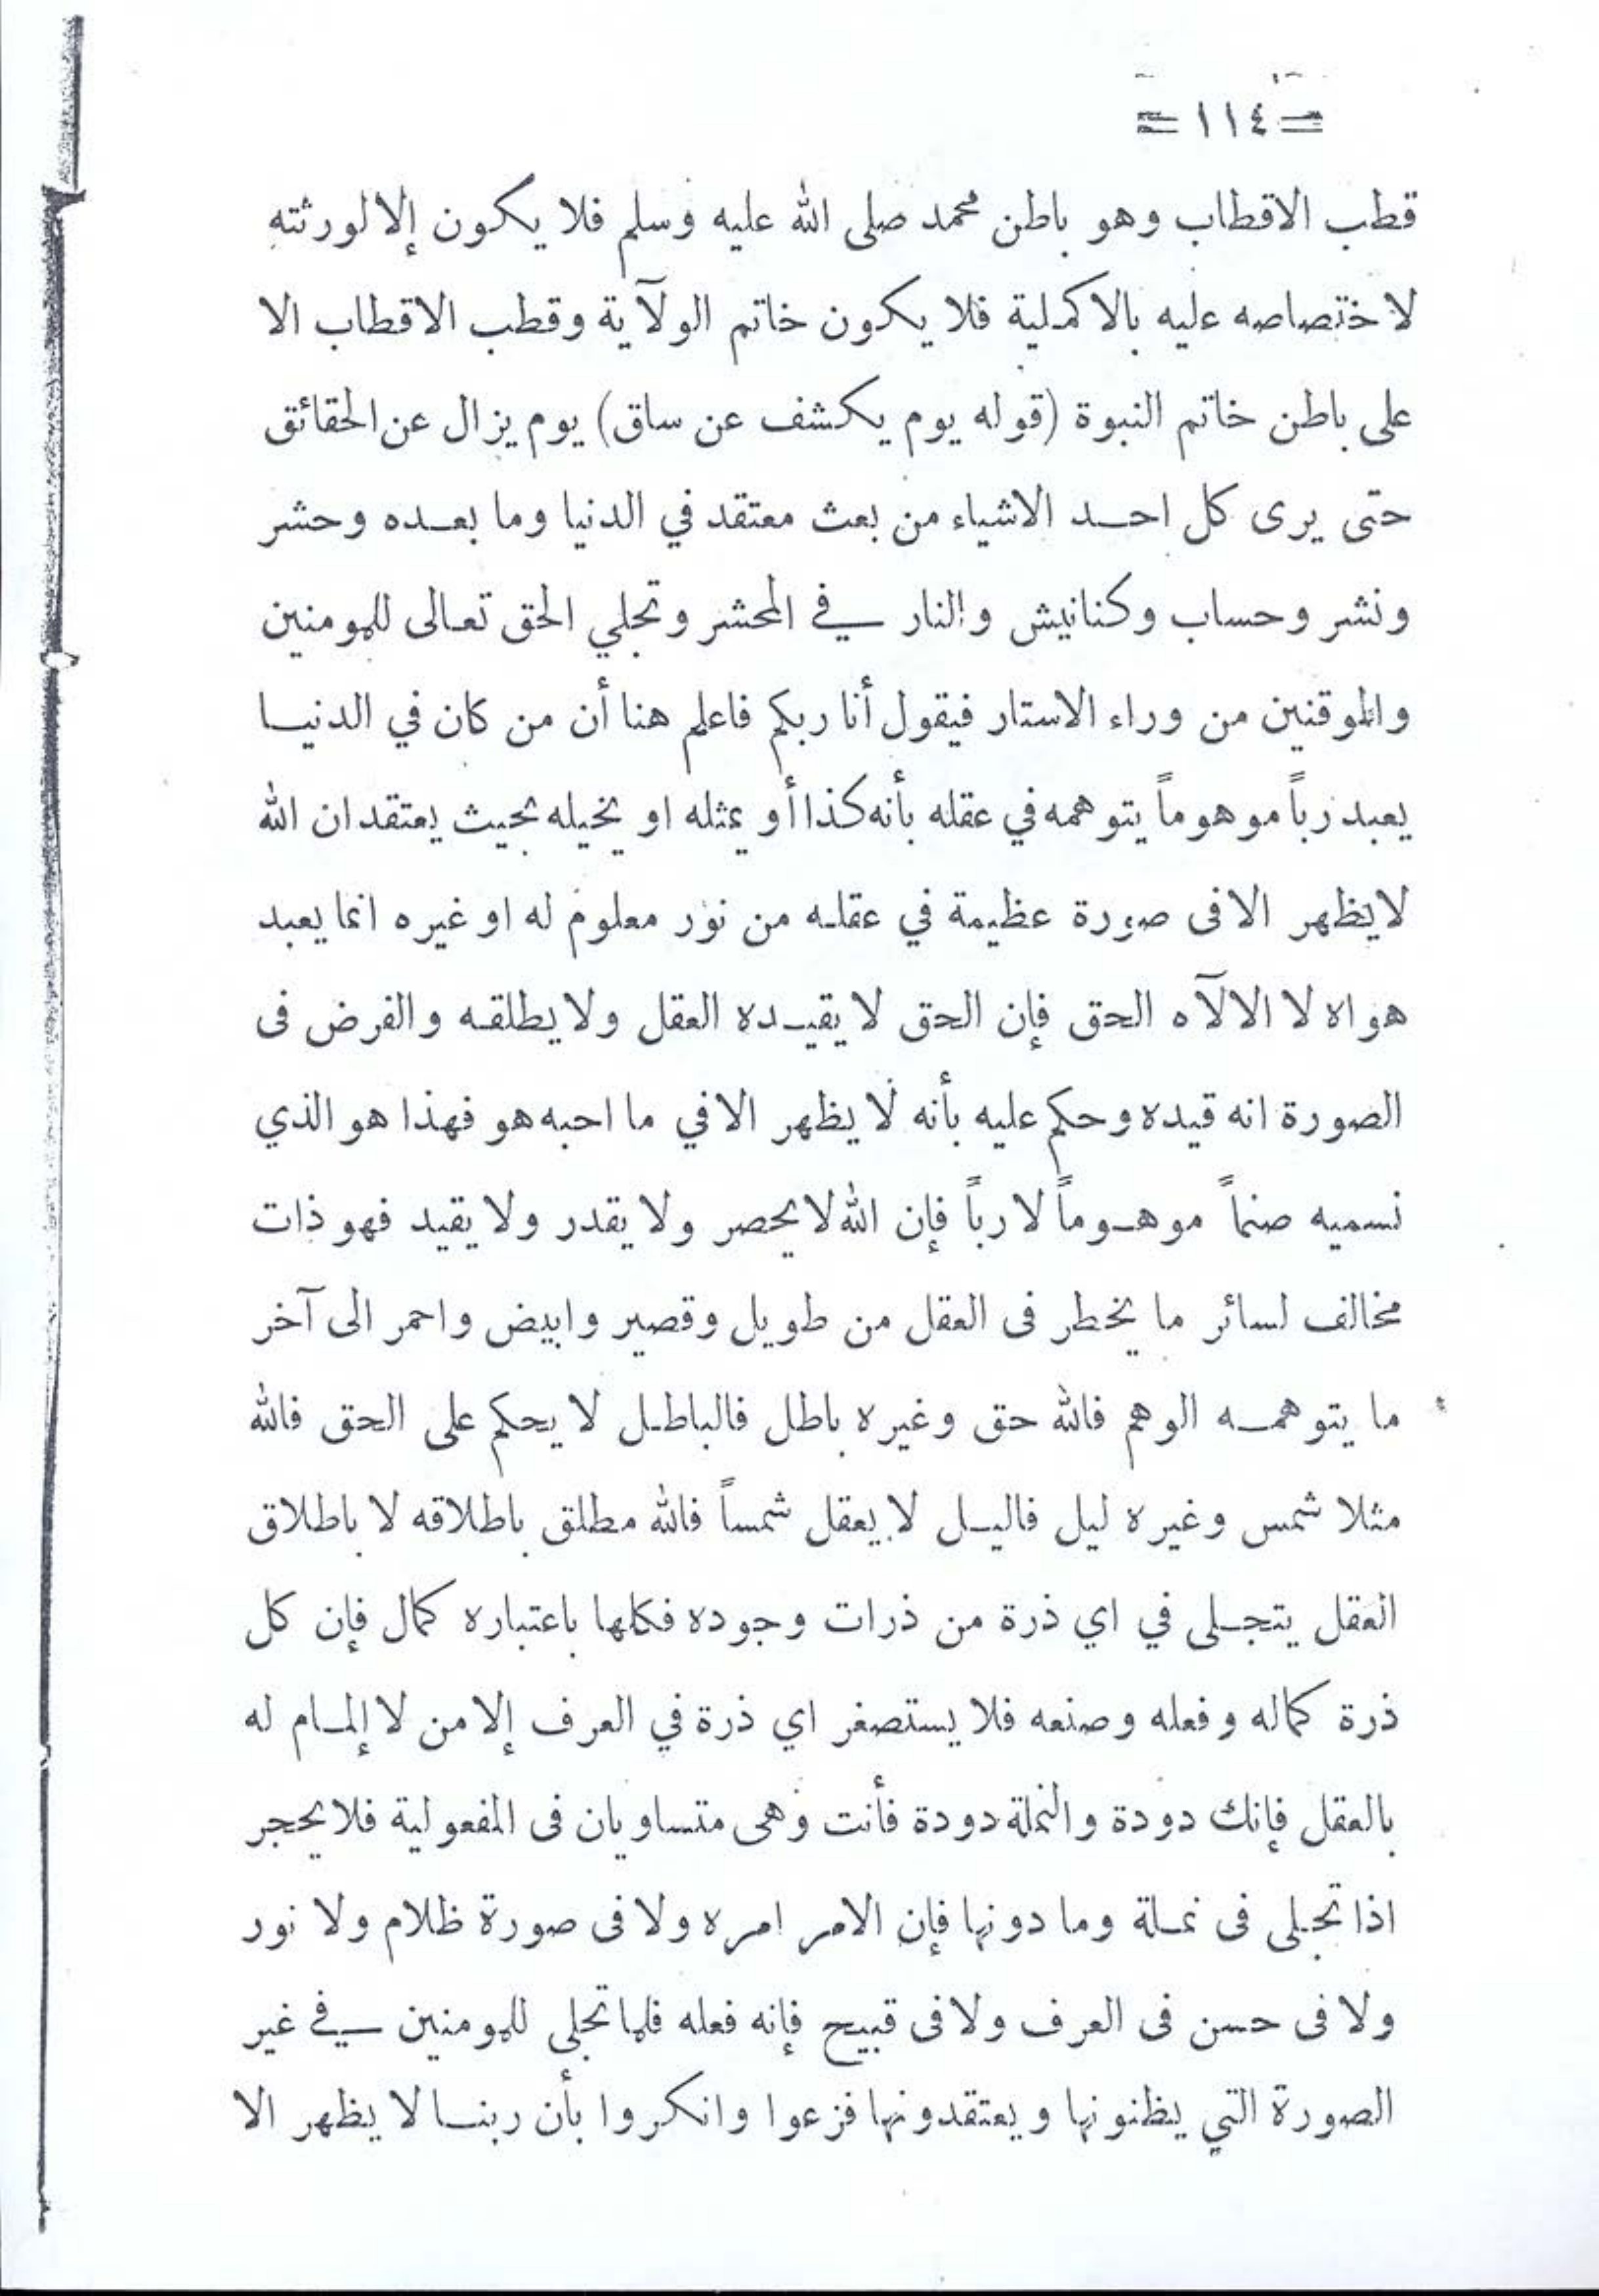 = ١١٤ =
قطب الاقطاب وهو باطن محمد صلى الله عليه وسلم فلا يكون إلا لورثته
لاختصاصه عليه بالاكملية فلا يكون خاتم الولآية وقطب الاقطاب الا
على باطن خاتم النبوة (قوله يوم يكشف عن ساق) يوم يزال عن الحقائق
حتى يرى كل احد الاشياء من بعث معتقد في الدنيا وما بعده وحشر
ونشر وحساب وكنانيش والنار في المحشر وتجلي الحق تعالى للمومنين
والموقنين من وراء الاستار فيقول أنا ربكم فاعلم هنا أن من كان في الدنيا
يعبد رباً موهوماً يتوهمه في عقله بأنه كذا أو يمثله او يخيله بحيث يعتقد ان الله
لا يظهر الا فى صورة عظيمة في عقله من نور معلوم له او غيره انما يعبد
هواه لا الالآه الحق فإن الحق لا يقيده العقل ولا يطلقه والفرض فى
الصورة انه قيده وحكم عليه بأنه لا يظهر الا في ما احبه هو فهذا هو الذي
نسميه صنماً موهوماً لا رباً فإن الله لا يحصر ولا يقدر ولا يقيد فهو ذات
مخالف لسائر ما يخطر فى العقل من طويل وقصير وابيض واحمر الى آخر
ما يتوهمه الوهم فالله حق وغيره باطل فالباطل لا يحكم على الحق فالله
مثلا شمس وغيره ليل فاليل لا يعقل شمساً فالله مطلق باطلاقه لا باطلاق
العقل يتجلى في اي ذرة من ذرات وجوده فكلها باعتباره كمال فإن كل
ذرة كماله وفعله وصنعه فلا يستصغر اي ذرة في العرف إلا من لا إلمام له
بالعقل فإنك دودة والنملة دودة فأنت وهى متساويان فى المفعولية فلا يحجر
اذا تجلى فى نملة وما دونها فإن الامر امره ولا فى صورة ظلام ولا نور
ولا فى حسن فى العرف ولا فى قبيح فإنه فعله فلما تجلى للمومنين في غير
الصورة التي يظنونها ويعتقدونها فزعوا وانكروا بأن ربنا لا يظهر الا